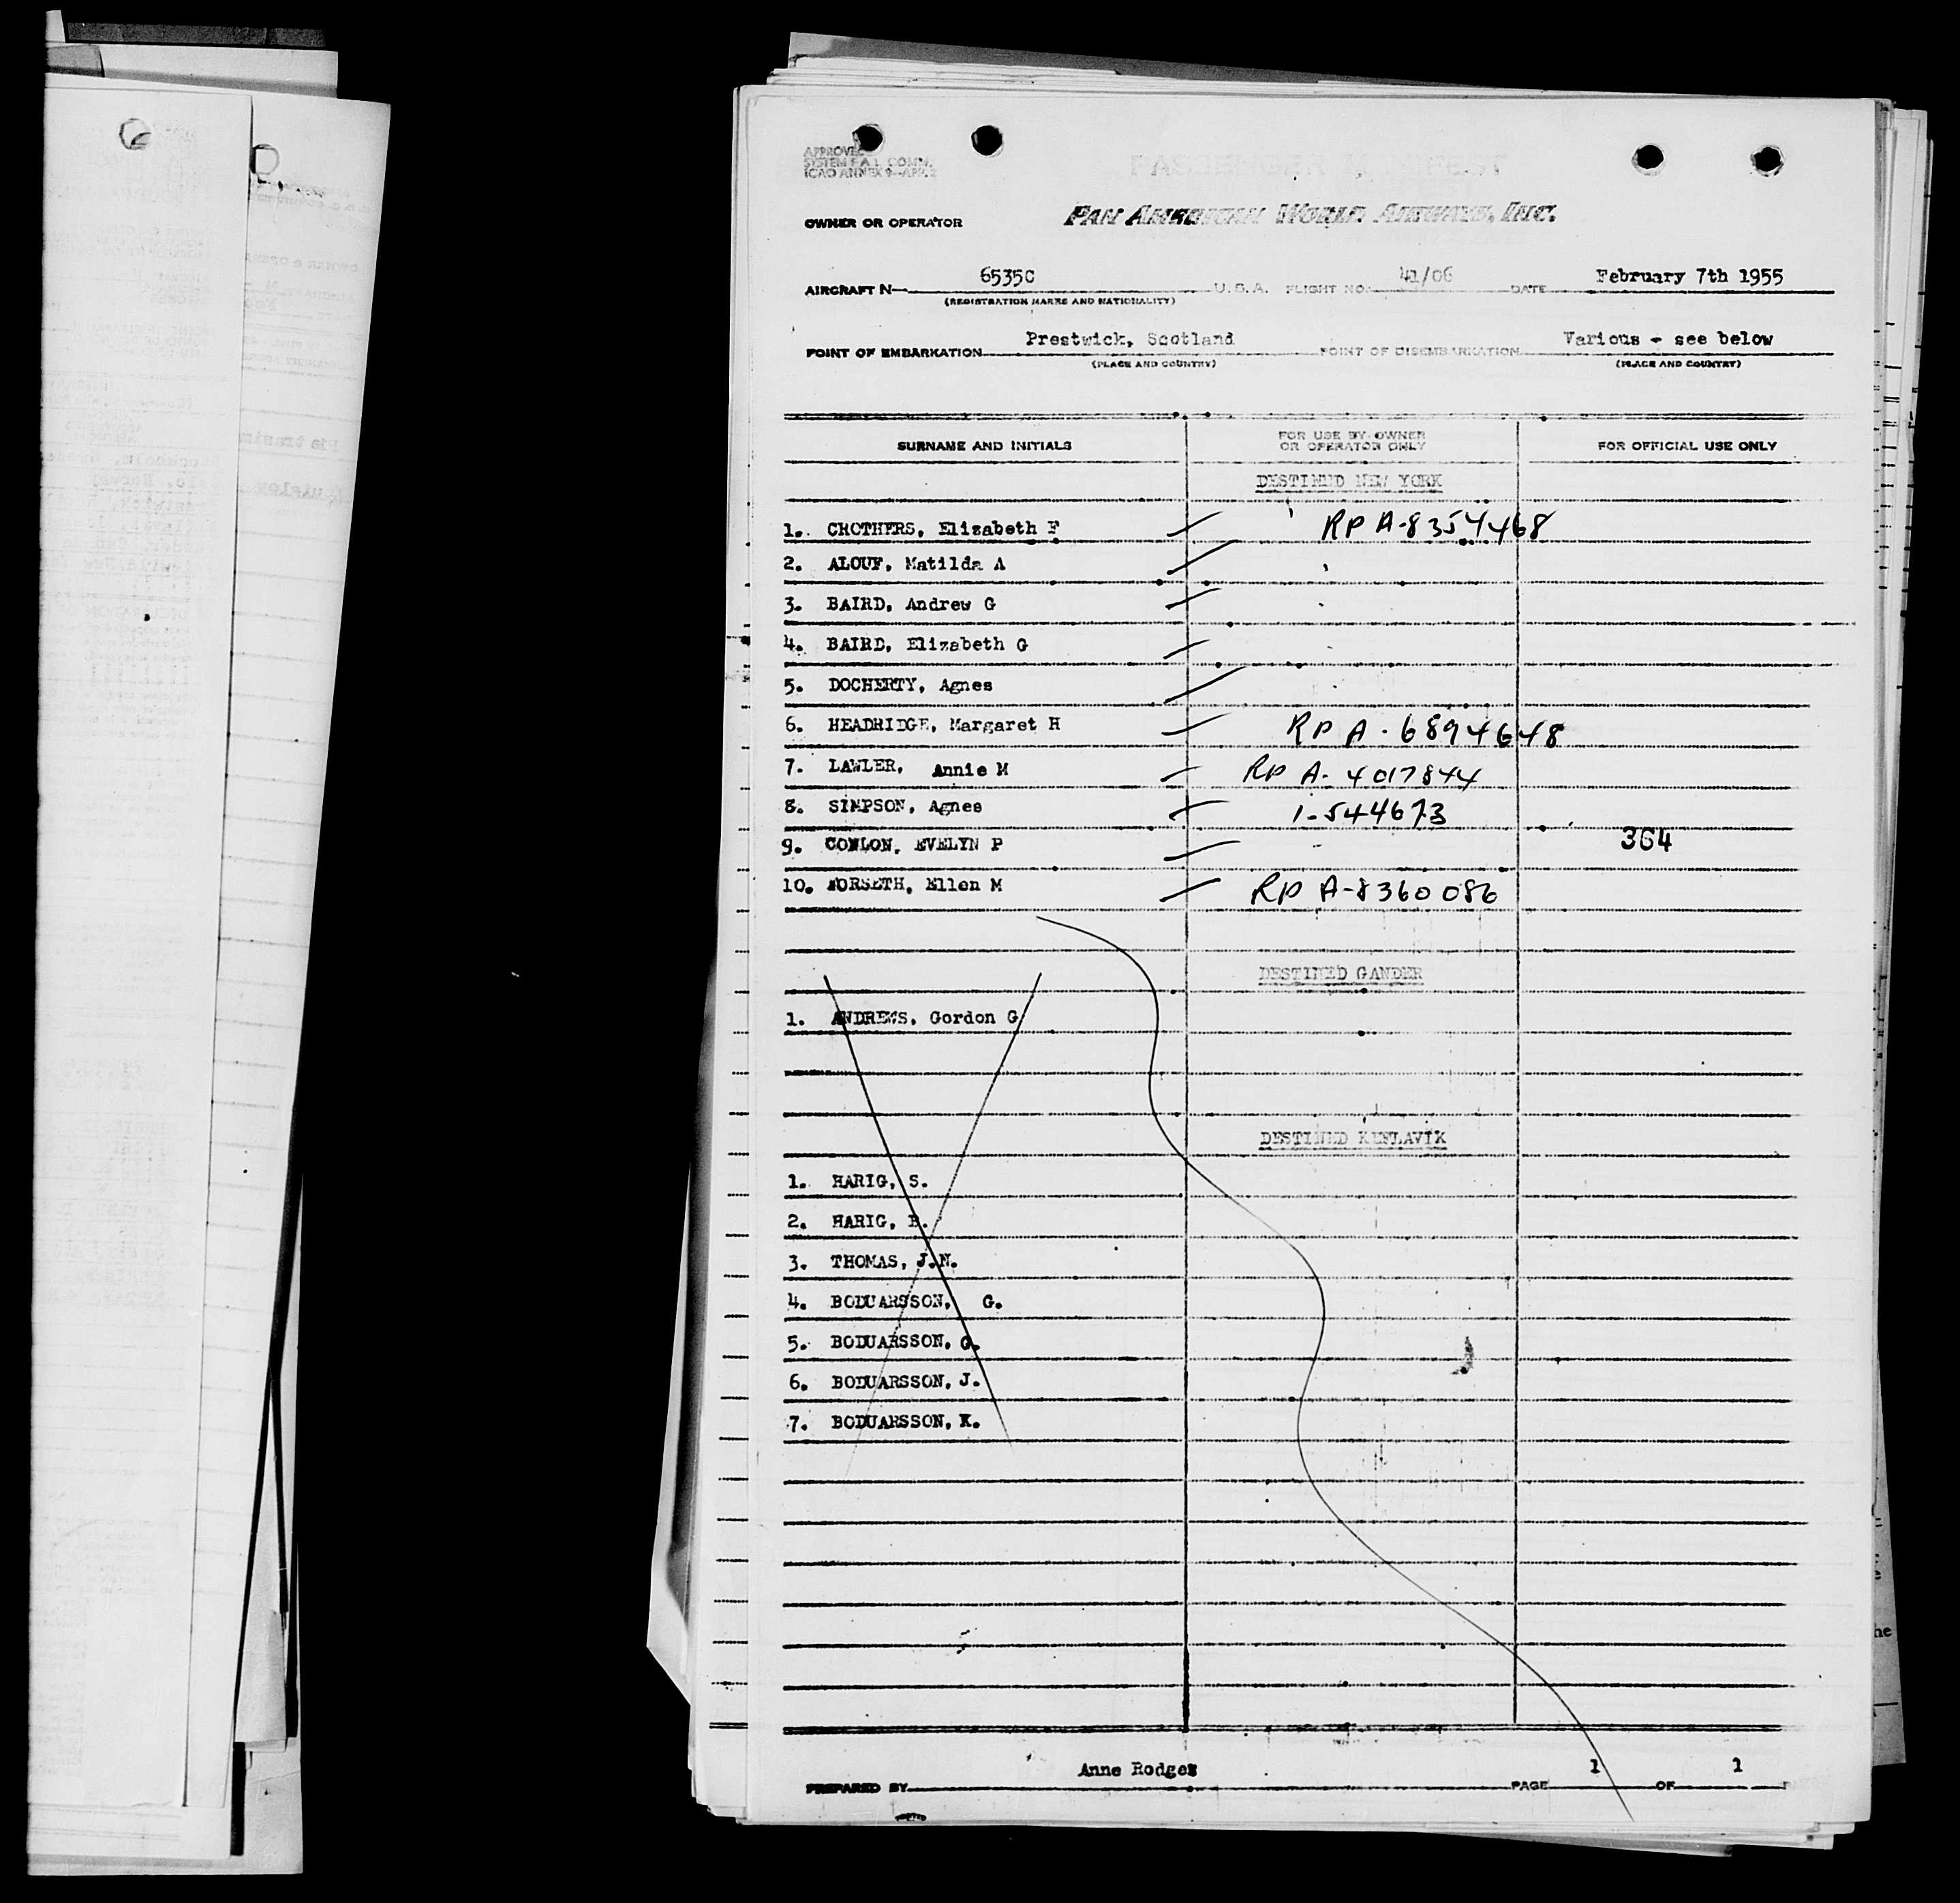 APPROVED
SYSTEM F A L COMM.
ICAO ANNEX 9—APP. 2
PASSENGER MANIFEST
OWNER OR OPERATOR PAN AMERICAN WORLD AIRWAYS, INC.
AIRCRAFT N— 6535C U.S.A. FLIGHT NO. 41/06 DATE February 7th 1955
(REGISTRATION MARKS AND NATIONALITY)
POINT OF EMBARKATION Prestwick, Scotland POINT OF DISEMBARKATION Various - see below
(PLACE AND COUNTRY) (PLACE AND COUNTRY)
SURNAME AND INITIALS FOR USE BY OWNER OR OPERATOR ONLY FOR OFFICIAL USE ONLY
DESTINED NEW YORK
1. CROTHERS, Elizabeth F RP A-8354468
2. ALOUF, Matilda A
3. BAIRD, Andrew G
4. BAIRD, Elizabeth G
5. DOCHERTY, Agnes
6. HEADRIDGE, Margaret H RP A-6894648
7. LAWLER, Annie M RP A-4017844
8. SIMPSON, Agnes 1-544673
9. CONLON, EVELYN P 364
10. NORSETH, Ellen M RP A-8360086
DESTINED GANDER
1. ANDREWS, Gordon G
DESTINED KEFLAVIK
1. HARIG, S.
2. HARIG, B.
3. THOMAS, J.N.
4. BODUARSSON, G.
5. BODUARSSON, G.
6. BODUARSSON, J.
7. BODUARSSON, K.
PREPARED BY Anne Rodger PAGE 1 OF 1